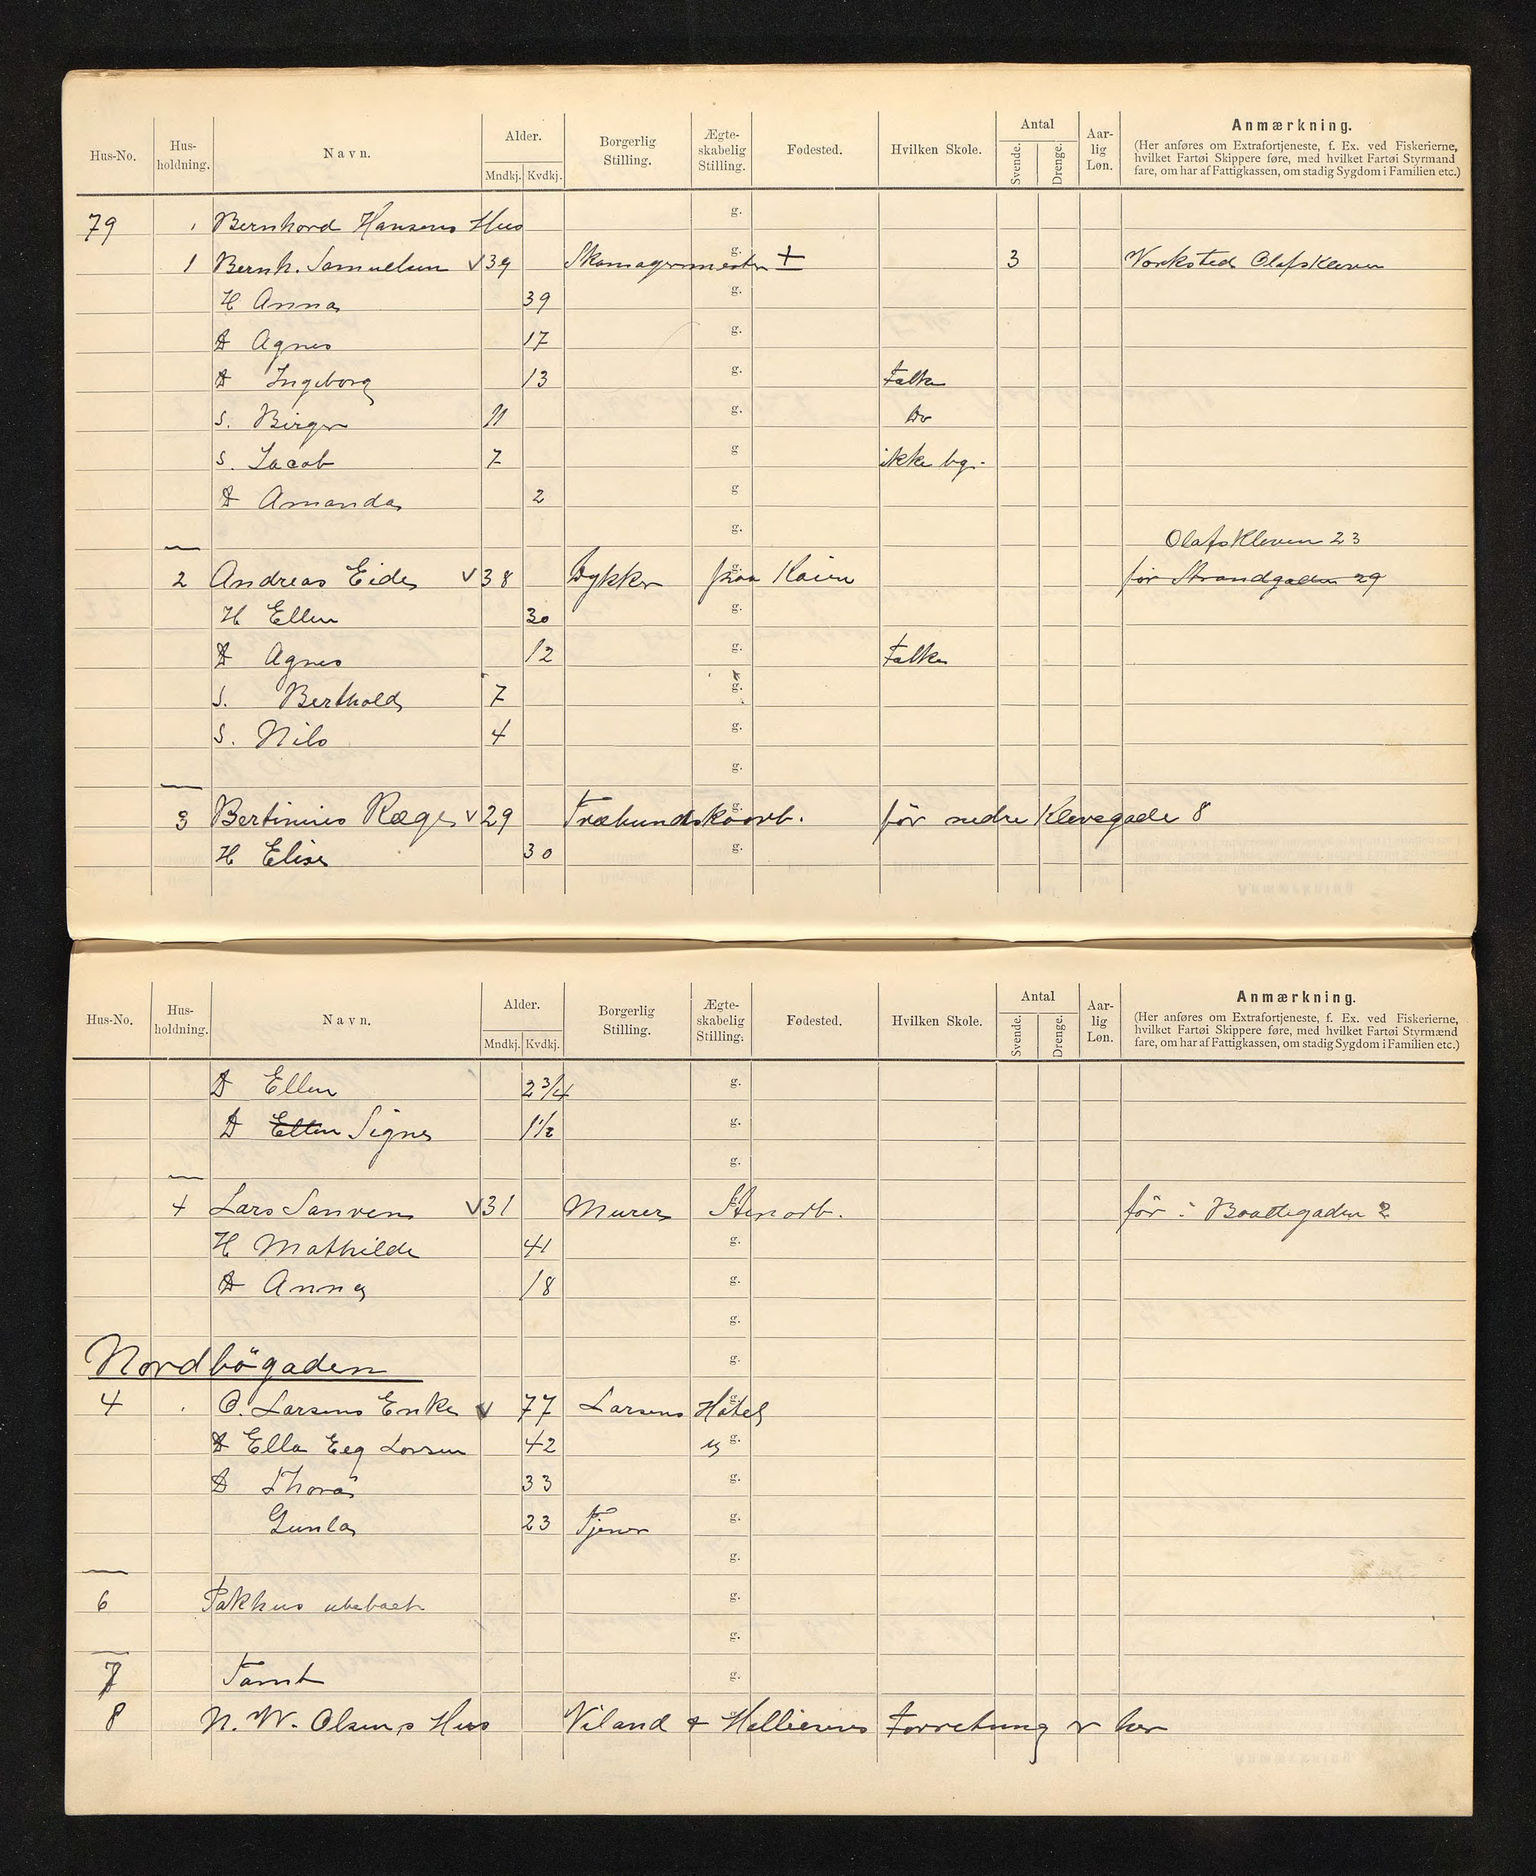 Hus-No. Hus-holdning. Navn. Alder. Mndkj. Kvdkj. Borgerlig Stilling. Ægte-skabelig Stilling. Fødested. Hvilken Skole. Antal Svende. Drenge. Aar-lig Løn. Anmærkning.
(Her anføres om Extrafortjeneste, f. Ex. ved Fiskerierne,
hvilket Fartøi Skippere føre, med hvilket Fartøi Styrmænd
fare, om har af Fattigkassen, om stadig Sygdom i Familien etc.)
79 Bernhard Hansens Hus g.
1 Bernh. Samuelsen v 39 Skomagermester g. + 3 Verksted Olafskleven
H Anna 39 g.
D Agnes 17 g.
D Ingeborg 13 g. Folke
S. Birger 11 g. Do
S. Jacob 7 g ikke bg.
D Amanda 2 g
g. Olafskleven 23
2 Andreas Eide v 38 Dykker g. paa Kaien før Strandgaden 29
H Ellen 30 g.
D Agnes 12 g. Folke
S. Berthold 7 g.
S. Nils 4 g.
g.
3 Bertinius Ræge v 29 Træbundskoarb. g. før nedre Klevegade 8
H Elise 30 g.
Hus-No. Hus-holdning. Navn. Alder. Mndkj. Kvdkj. Borgerlig Stilling. Ægte-skabelig Stilling. Fødested. Hvilken Skole. Antal Svende. Drenge. Aar-lig Løn. Anmærkning.
(Her anføres om Extrafortjeneste, f. Ex. ved Fiskerierne,
hvilket Fartøi Skippere føre, med hvilket Fartøi Styrmænd
fare, om har af Fattigkassen, om stadig Sygdom i Familien etc.)
D Ellen 2 3/4 g.
D Ellen Signe 1 1/2 g.
g.
4 Lars v 31 Murer Stenarb. før i Braattegaden 2
H Mathilde 41 g.
D Anna 18 g.
g.
Nordbögaden g.
4 O. Larsens Enke v 77 Larsens Hotel g.
D Ella Eeg Larsen 42 g.
D Thora 33 g.
Gunla 23 Tjener g.
g.
6 Pakhus ubeboet g.
g.
7 Tomt g.
8 N. W. Olsens Hus Viland & Forretning er her